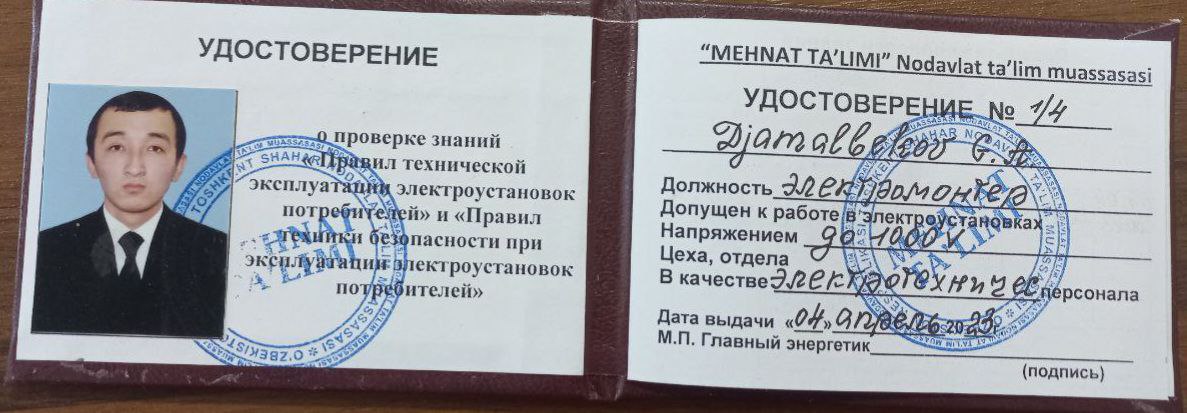 УДОСТОВЕРЕНИЕ
о проверке знаний
«Правил технической
эксплуатации электроустановок
потребителей» и «Правил
техники безопасности при
эксплуатации электроустановок
потребителей»
“MEHNAT TA’LIMI” Nodavlat ta’lim muassasasi
УДОСТОВЕРЕНИЕ № 1/4
Djamalbekov
Должность электромонтер
Допущен к работе в электроустановках
Напряжением до 1000V
Цеха, отдела
В качестве электротехничес персонала
Дата выдачи «04» апрель 2023
М.П. Главный энергетик
(подпись)
MEHNAT
TA'LIMI